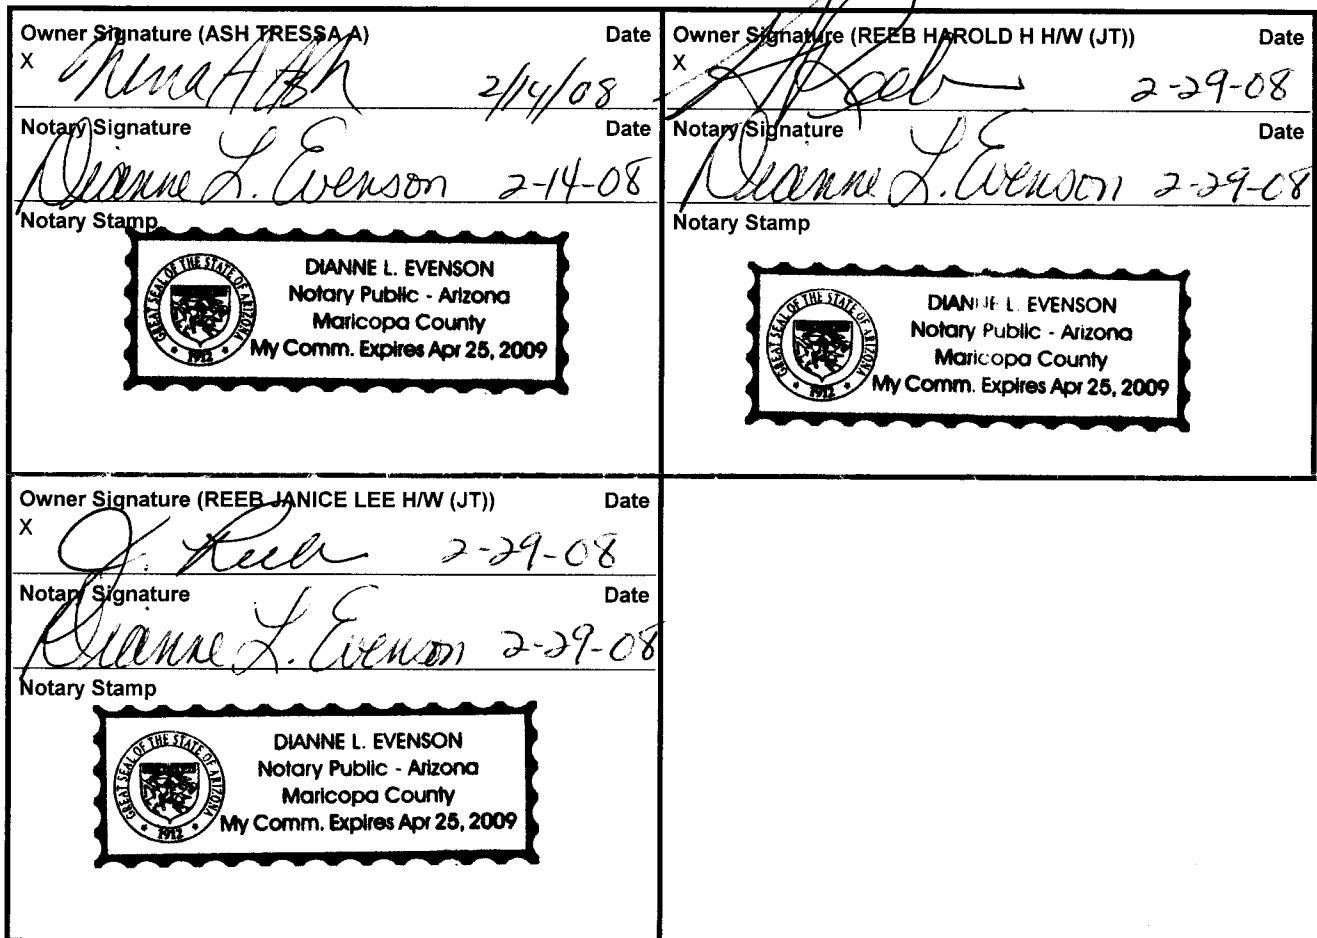 Owner Signature (ASH TRESSA A) Date
X Nina A Ash 2/14/08
Notary Signature Date
Dianne L. Evenson 2-14-08
Notary Stamp
GREAT SEAL OF THE STATE OF ARIZONA
1912
DIANNE L. EVENSON
Notary Public - Arizona
Maricopa County
My Comm. Expires Apr 25, 2009
Owner Signature (REEB HAROLD H H/W (JT)) Date
X Reeb 2-29-08
Notary Signature Date
Dianne L. Evenson 2-29-08
Notary Stamp
GREAT SEAL OF THE STATE OF ARIZONA
1912
DIANNE L. EVENSON
Notary Public - Arizona
Maricopa County
My Comm. Expires Apr 25, 2009
Owner Signature (REEB JANICE LEE H/W (JT)) Date
X J. Reeb 2-29-08
Notary Signature Date
Dianne L. Evenson 2-29-08
Notary Stamp
GREAT SEAL OF THE STATE OF ARIZONA
1912
DIANNE L. EVENSON
Notary Public - Arizona
Maricopa County
My Comm. Expires Apr 25, 2009